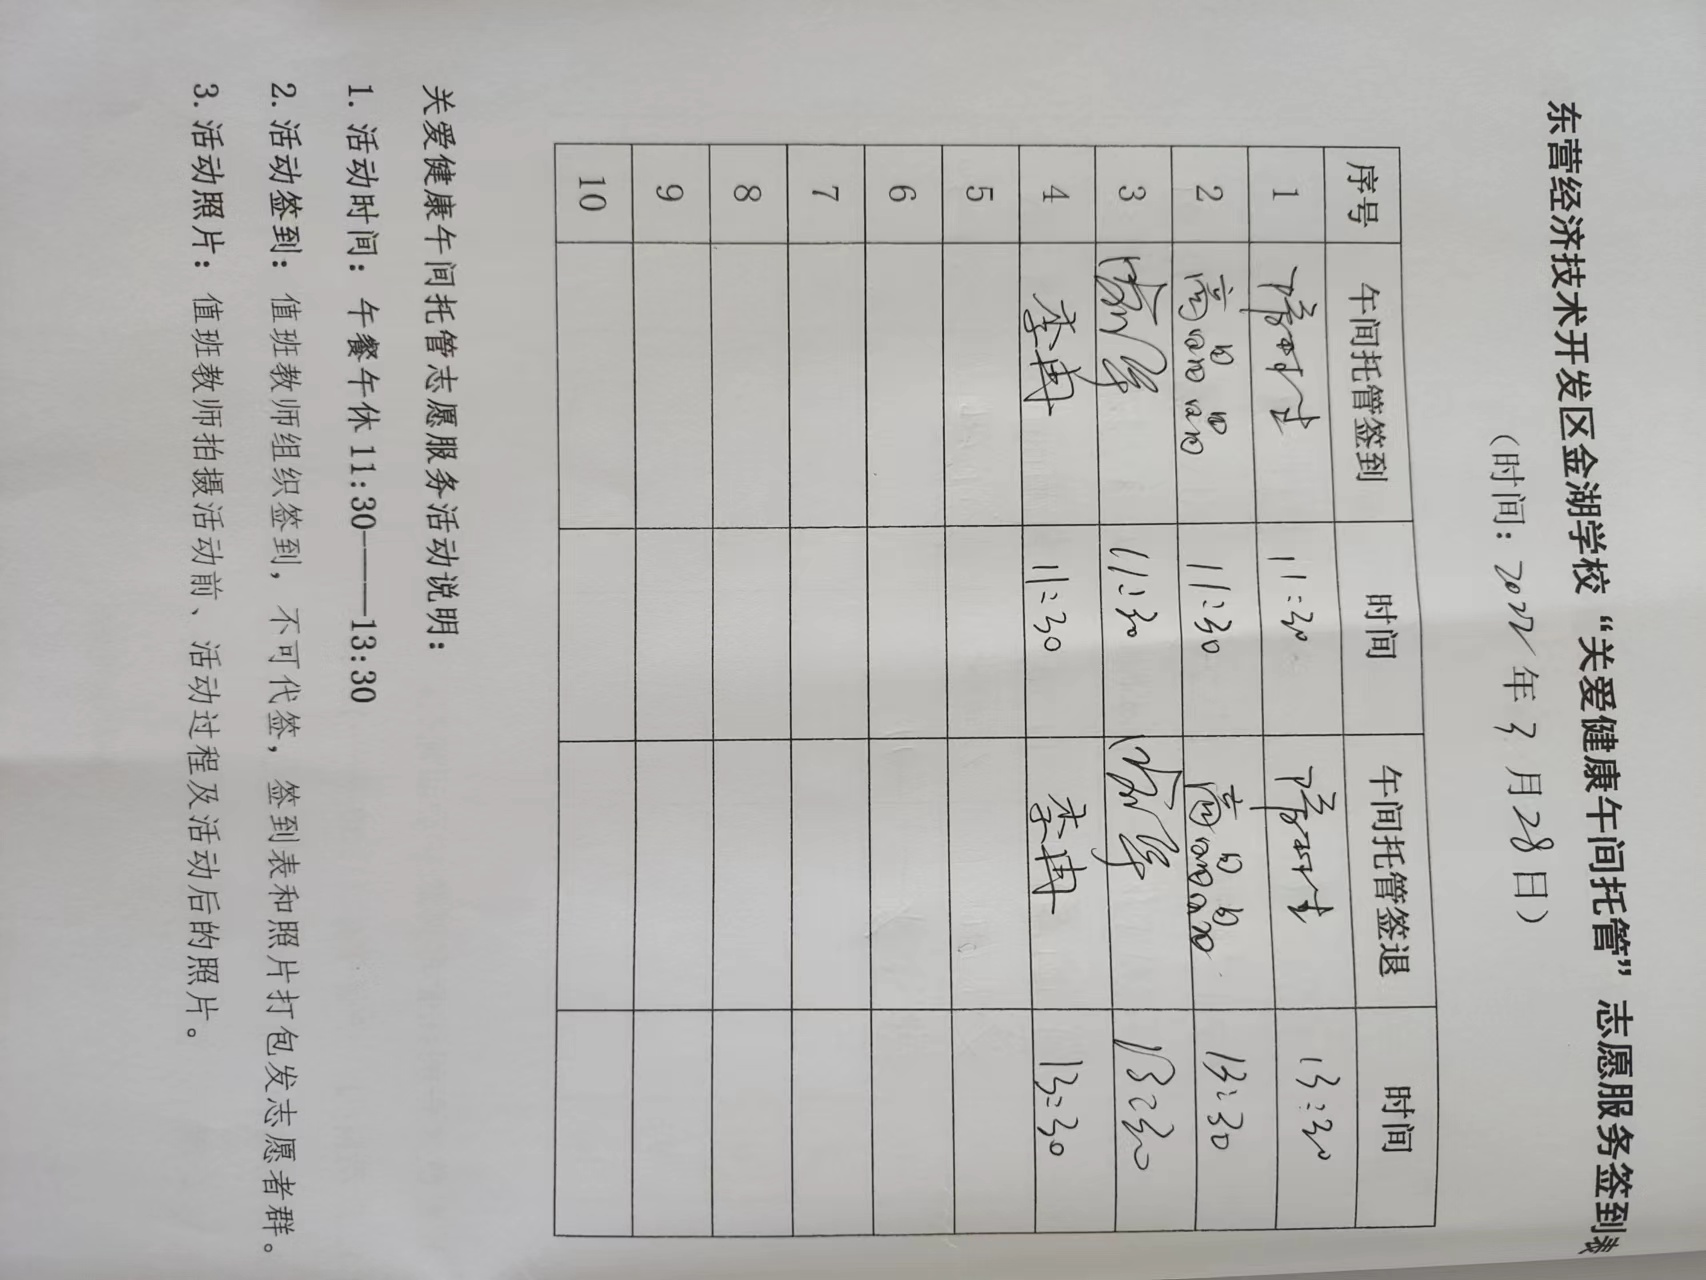 东营经济技术开发区金湖学校“关爱健康午间托管”志愿服务签到表
（时间：2022年3月28日）
序号 午间托管签到 时间 午间托管签退 时间
1 11:30 13:30
2 高晶晶 11:30 高晶晶 13:30
3 11:30 13:30
4 李冉 11:30 李冉 13:30
5
6
7
8
9
10
关爱健康午间托管志愿服务活动说明：
1. 活动时间：午餐午休 11:30———13:30
2. 活动签到：值班教师组织签到，不可代签，签到表和照片打包发志愿者群。
3. 活动照片：值班教师拍摄活动前、活动过程及活动后的照片。